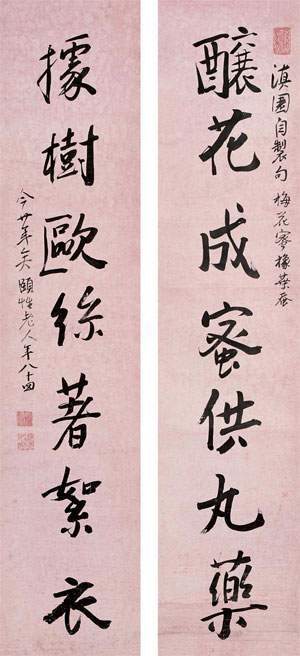 滇園自製句 梅花蜜橡葉蚕
釀花成蜜供丸藥
據樹歐絲著絮衣
今廿年矣 頤性老人年八十四